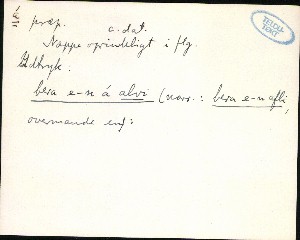 Á
præp. c. dat.
Næppe oprindeligt i flg.
Udtryk:
bera e-n á alvi (norr.: bera e-n afli,
overmande en):